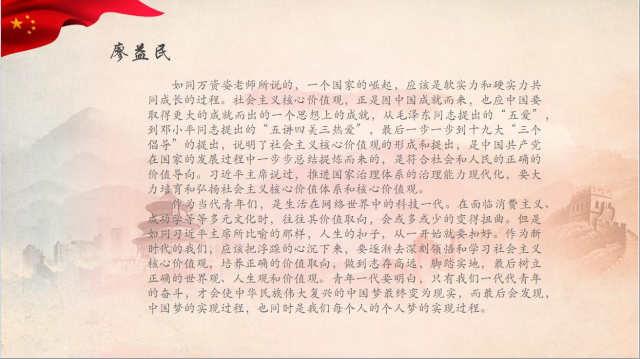 廖益民
如同万资姿老师所说的，一个国家的崛起，应该是软实力和硬实力共
同成长的过程。社会主义核心价值观，正是因中国成就而来，也应中国要
取得更大的成就而出的一个思想上的成就，从毛泽东同志提出的“五爱”，
到邓小平同志提出的“五讲四美三热爱”，最后一步一步到十九大“三个
倡导”的提出，说明了社会主义核心价值观的形成和提出，是中国共产党
在国家的发展过程中一步步总结提炼而来的，是符合社会和人民的正确的
价值导向。习近平主席说过，推进国家治理体系的治理能力现代化，要大
力培育和弘扬社会主义核心价值体系和核心价值观。
作为当代青年们，是生活在网络世界中的科技一代。在面临消费主义、
成功学等等多元文化时，往往其价值取向，会或多或少的变得扭曲。但是
如同习近平主席所比喻的那样，人生的扣子，从一开始就要扣好。作为新
时代的我们，应该把浮躁的心沉下来，要逐渐去深刻领悟和学习社会主义
核心价值观，培养正确的价值取向，做到志存高远，脚踏实地，最后树立
正确的世界观、人生观和价值观。青年一代要明白，只有我们一代代青年
的奋斗，才会使中华民族伟大复兴的中国梦最终变为现实，而最后会发现，
中国梦的实现过程，也同时是我们每个人的个人梦的实现过程。